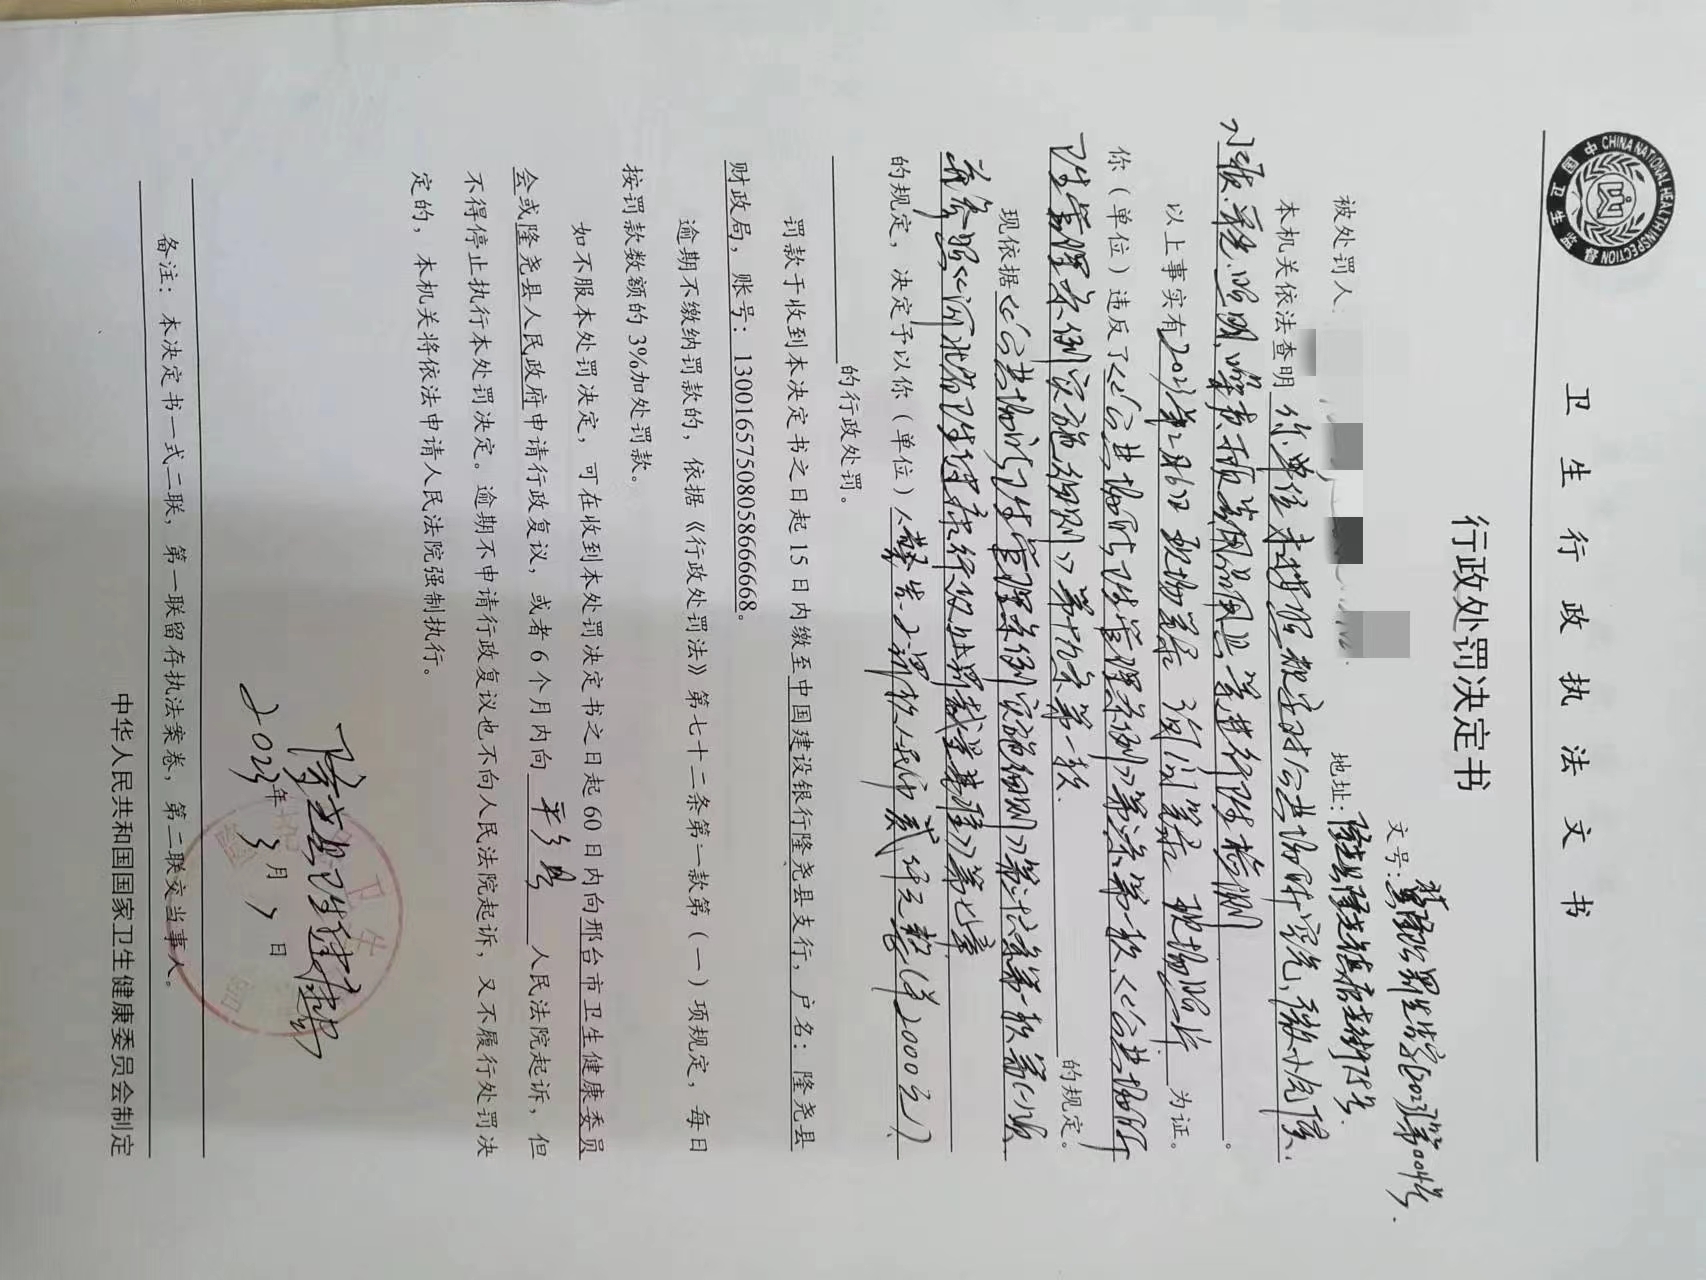 中国卫生监督
CHINA NATIONAL HEALTH INSPECTION
卫生行政执法文书
行政处罚决定书
文号：冀隆卫公罚先告字[2023]第004号
被处罚人： 地址：隆尧县隆尧镇康庄街75号
本机关依法查明 你单位未按照规定对公共场所空气、微小气候、
水质、采光、照明、噪声、顾客用品用具等进行卫生检测。
以上事实有2023年2月16日 现场笔录 询问笔录 现场照片 为证。
你（单位）违反了《公共场所卫生管理条例》第六条第一款、《公共场所
卫生管理条例实施细则》第十九条第一款 的规定。
现依据《公共场所卫生管理条例实施细则》第三十六条第一款第（一）项
并参照《河北省卫生健康行政处罚裁量基准》第七章
的规定，决定予以你（单位）1、警告 2、罚款人民币贰仟元整（￥2000元）
的行政处罚。
罚款于收到本决定书之日起15日内缴至中国建设银行隆尧县支行，户名：隆尧县
财政局，账号：13001657508058666668。
逾期不缴纳罚款的，依据《行政处罚法》第七十二条第一款第（一）项规定，每日
按罚款数额的3%加处罚款。
如不服本处罚决定，可在收到本处罚决定书之日起60日内向邢台市卫生健康委员
会或隆尧县人民政府申请行政复议，或者6个月内向 平乡县 人民法院起诉，但
不得停止执行本处罚决定。逾期不申请行政复议也不向人民法院起诉，又不履行处罚决
定的，本机关将依法申请人民法院强制执行。
隆尧县卫生健康局
2023年3月7日
备注：本决定书一式二联，第一联留存执法案卷，第二联交当事人。
中华人民共和国国家卫生健康委员会制定